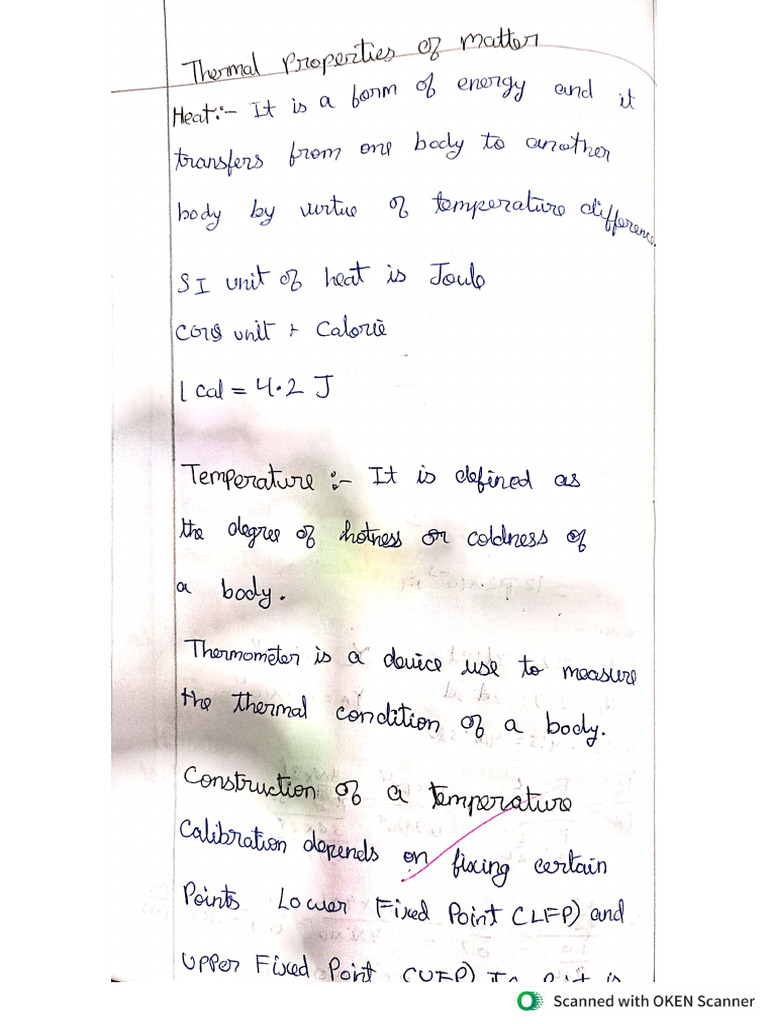 Thermal Properties of matter
Heat:- It is a form of energy and it
transfers from one body to another
body by virtue of temperature difference.
SI unit of heat is Joule
CGS unit : Calorie
1 cal = 4.2 J
Temperature :- It is defined as
the degree of hotness or coldness of
a body.
Thermometer is a device use to measure
the thermal condition of a body.
Construction of a temperature
Calibration depends on fixing certain
Points Lower Fixed Point (LFP) and
UPPer Fixed Point (UFP)
Scanned with OKEN Scanner